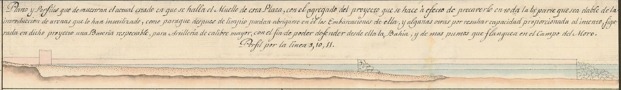 Plano y Perfiles que demuestran el actual estado en que se halla el Muelle de esta Plaza, con el agregado del proyecto que se hace á efecto de precaverlo en toda la la parte que sea dable de la
introduccion de arenas que le han inutilizado, como paraque despues de limpio puedan abrigarse en el las Embarcaciones de ella, y algunas otras por resultar capacidad proporcionada al intento, figu
rada en dicho proyecto una Bateria respetable, para Artilleria de calibre mayor, con el fin de poder defender desde ella la Bahia, y de mas puntos que flanquea en el Campo del Moro.
Perfil por la linea 9, 10, 11.